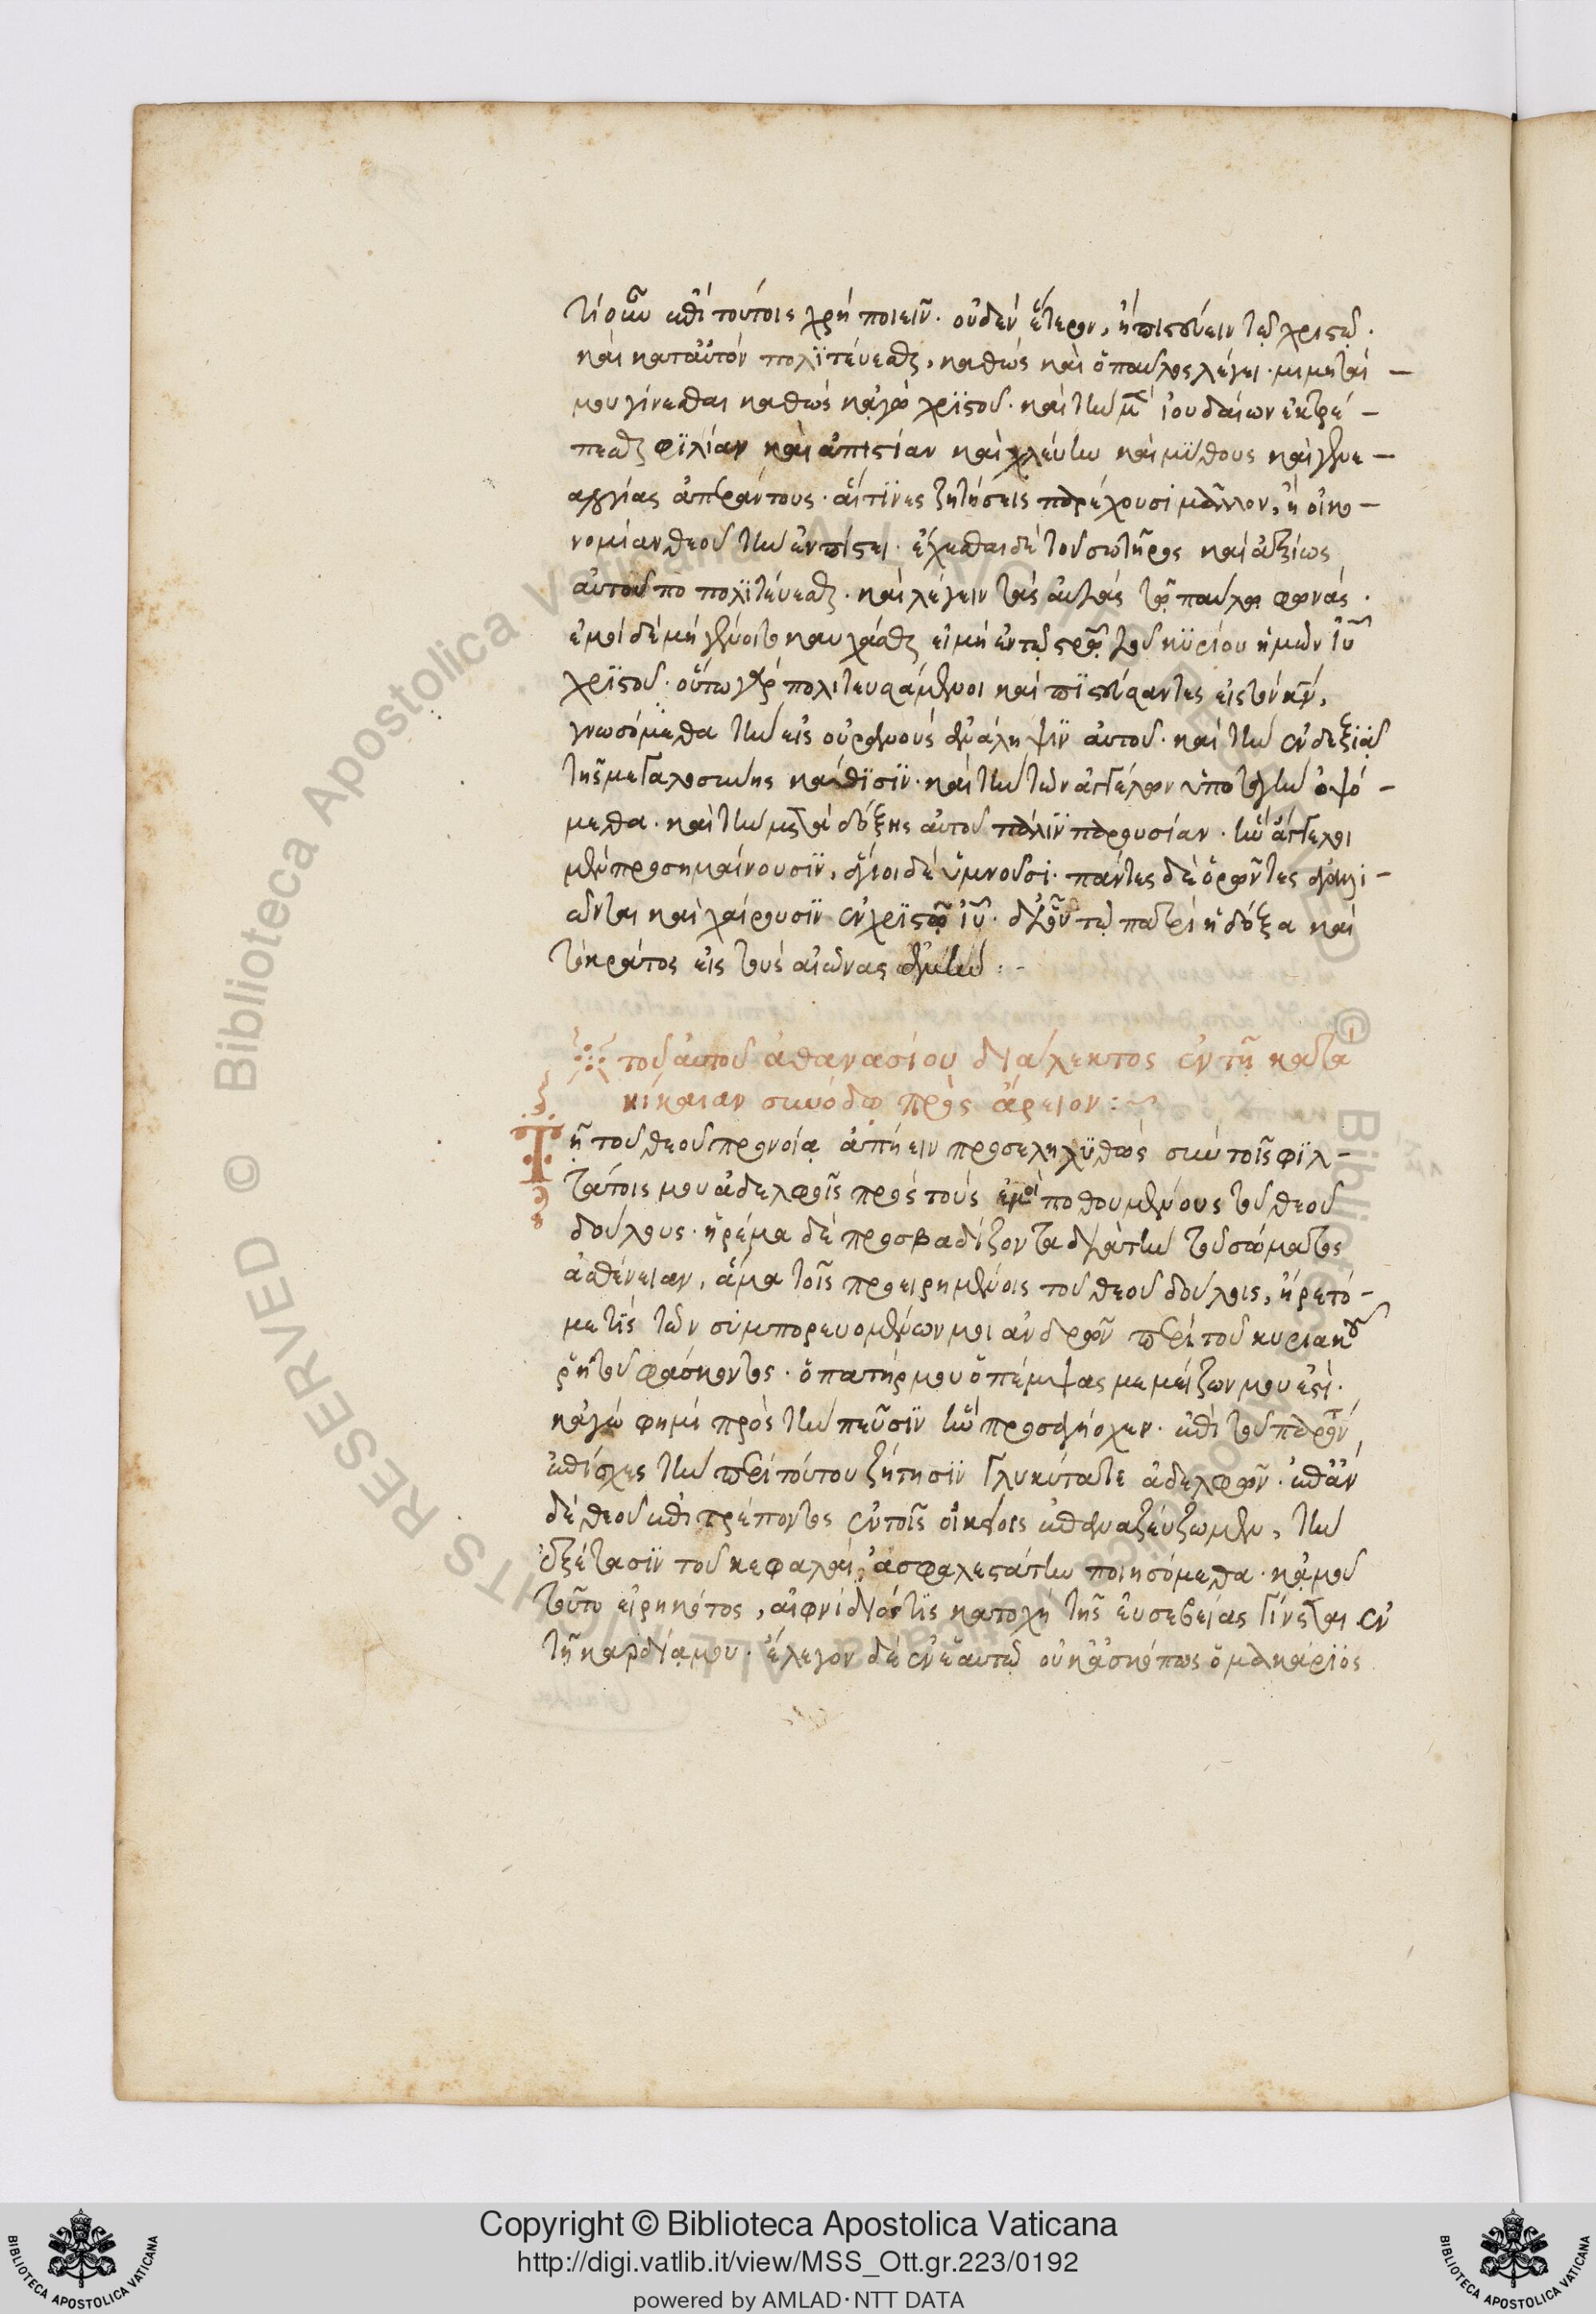 τί οὖν ἐπὶ τούτοις χρὴ ποιεῖν. οὐδὲν ἕτερον, ἢ πιστεύειν τῷ χριστῷ.
καὶ κατ' αὐτὸν πολϊτεύεσθαι, καθὼς καὶ ὁ παῦλος λέγει. μιμηταί
μου γίνεσθαι καθὼς κἀγὼ χρϊστοῦ. καὶ τὴν μετὰ ἰουδαίων ἐκτρέ-
πεσθαι φϊλίαν καὶ ἀπιστίαν καὶ χλεύην καὶ μύθους καὶ γενε-
αλγίας ἀπεράντους. αἵτϊνες ζητήσεις παρέχουσι μᾶλλον, ἢ οἰκο-
νομίαν θεοῦ τὴν ἐν πίστει. ἔχεσθαι δὲ τοῦ σωτῆρος καὶ ἀξίως
αὐτοῦ πο πολϊτεύεσθαι. καὶ λέγειν τὰς αὐτὰς τῷ παύλῳ φωνάς.
ἐμοὶ δὲ μὴ γένοιτο καυχᾶσθαι εἰ μὴ ἐν τῷ στρῷ τοῦ κϋρίου ἡμῶν ἰυ
χρϊστοῦ. οὕτω γὰρ πολιτευσάμενοι καὶ πϊστεύσαντες εἰς τὸν κν,
γνωσόμεθα τὴν εἰς οὐρανοὺς ἀνάληψϊν αὐτοῦ. καὶ τὴν ἐν δεξϊᾷ
τῆς μεγαλοσύνης κάθϊσϊν. καὶ τὴν τῶν ἀγγέλων ὑποταγὴν ὀψό-
μεθα. καὶ τὴν μετὰ δόξης αὐτοῦ πάλϊν παρουσίαν. ἣν ἄγγελοι
μὲν προσημαίνουσϊν, ἅγιοι δὲ ὑμνοῦσι. πάντες δὲ ὁρῶντες ἀγαλλι-
ῶνται καὶ χαίρουσϊν ἐν χρϊστῷ ἰυ. δι' οὗ τῷ πατρὶ ἡ δόξα καὶ
τὸ κράτος εἰς τοὺς αἰῶνας ἀμήν:-
τοῦ αὐτοῦ ἀθανασίου διάλεκτος ἐν τῇ κατὰ
νίκαιαν συνόδῳ πρὸς ἄρειον:~
Τῇ τοῦ θεοῦ προνοίᾳ ἀπῄειν προσεληλϋθὼς σὺν τοῖς φϊλ-
τάτοις μου ἀδελφοῖς πρὸς τοὺς ἐμοὶ ποθουμένους τοῦ θεοῦ
δούλους. ἠρέμα δὲ προσβαδίζοντα διὰ τὴν τοῦ σώματος
ἀσθένειαν, ἅμα τοῖς προειρημένοις τοῦ θεοῦ δούλοις, ἤρετό-
με τϊς τῶν συμπορευομένων μοι ἀνδρῶν περὶ τοῦ κυριακοῦ
ῥητοῦ φάσκοντος. ὁ πατήρ μου ὁ πέμψας με μείζων μου ἐστί.
κἀγώ φημι πρὸς τὴν πεῦσϊν ἣν προσενήνοχεν. ἐπὶ τοῦ παρόντος
ἐπίσχες τὴν περὶ τούτου ζήτησϊν γλυκύτατε ἀδελφῶν. ἐπὰν
δὲ θεοῦ ἐπιτρέποντος ἐν τοῖς οἰκείοις ἐπαναζεύξωμεν, τὴν
ἐξέτασϊν τοῦ κεφαλαίου ἀσφαλεστάτην ποιησόμεθα. κἀμοῦ
τοῦτο εἰρηκότος, αἰφνίδϊός τϊς κατοχὴ τῆς εὐσεβείας γίνεται ἐν
τῇ καρδίᾳ μου. ἔλεγον δὲ ἐν ἑαυτῷ οὐκ ἀσκόπως ὁ μακάριος
Copyright © Biblioteca Apostolica Vaticana
http://digi.vatlib.it/view/MSS_Ott.gr.223/0192
powered by AMLAD·NTT DATA